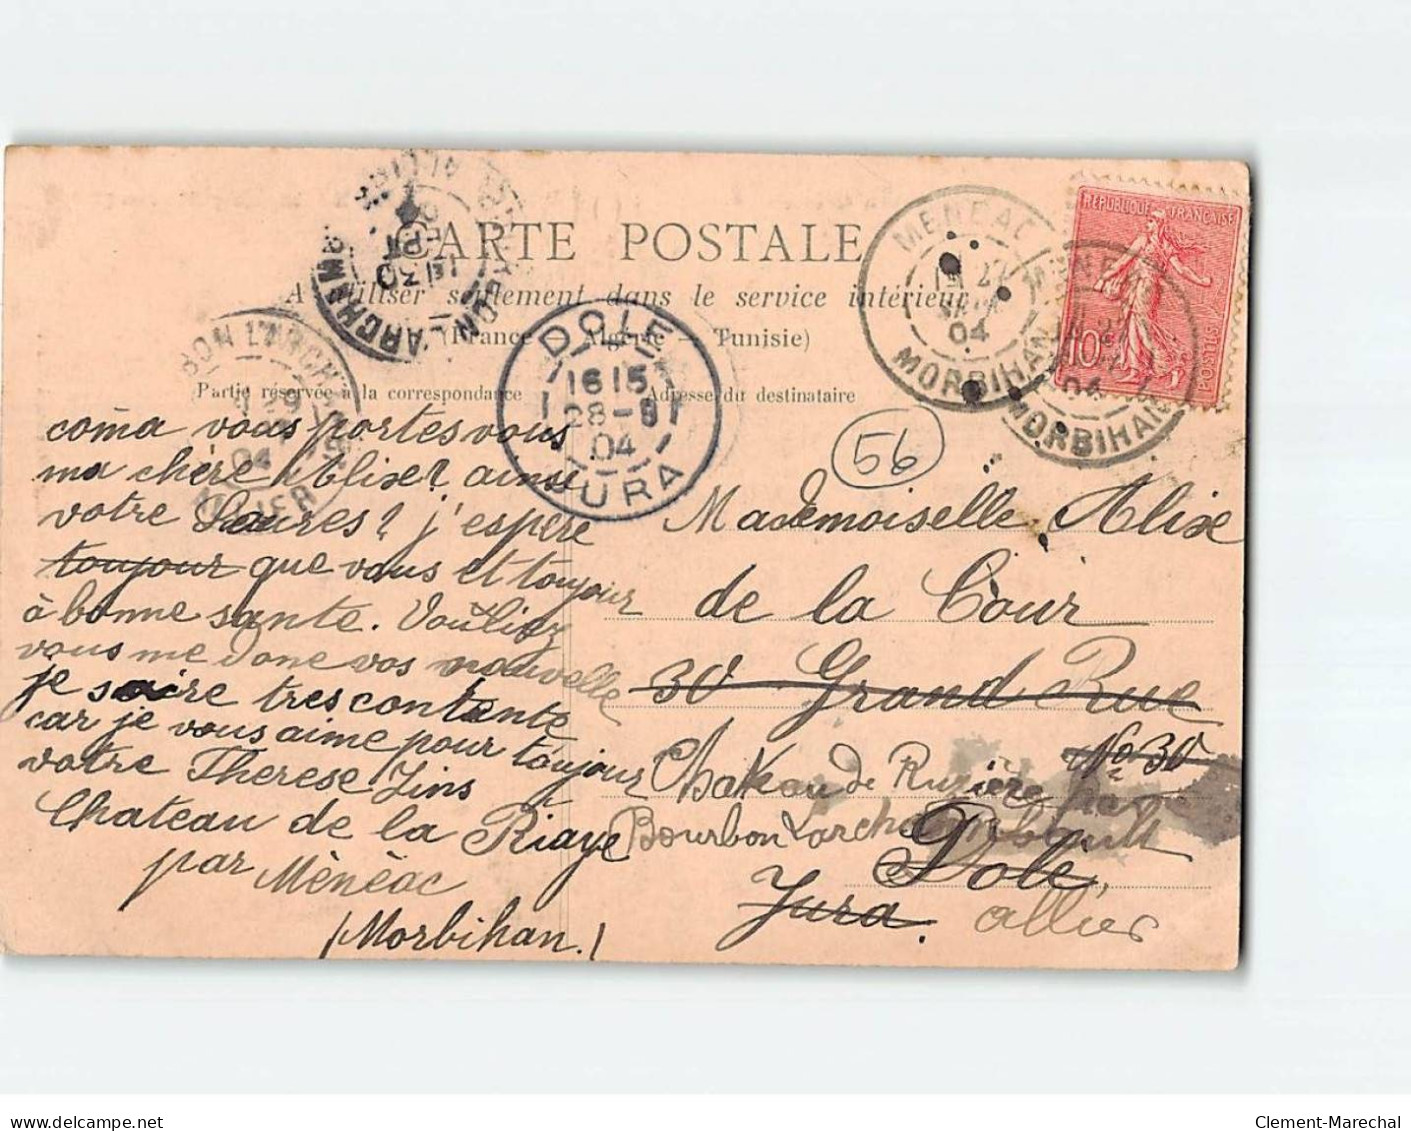 CARTE POSTALE
A utiliser seulement dans le service intérieur
(France - Algérie - Tunisie)
Partie réservée à la correspondance
Adresse du destinataire
MENEAC
27
04
MORBIHAN
MORBIHAN
04
REPUBLIQUE FRANÇAISE
10
POSTES
DOLE
16 15
28-9
04
JURA
BON L'ARCH
04
ALLIER
L'ARCHAMB
30
56
coma vous portes vous
ma chère Alixe? ainsi
votre Soeures? j'espere
toujour que vous et toujour
à bonne sante. Vouliez
vous me done vos nouvelle
je saire tres contante
car je vous aime pour toujour
votre Therese Lins
Chateau de la Riaye
par Mènèac
(Morbihan.)
Mademoiselle Alixe
de la Cour
30 Grand Rue
No 30
Chateau de Ruzière
Bourbon Larchambault
Dole,
Jura. allier
Clement-Marechal